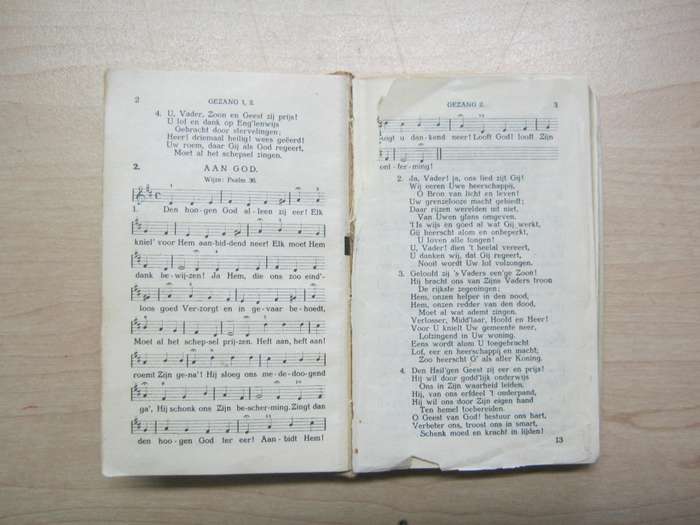 2 GEZANG 1, 2.
4. U, Vader, Zoon en Geest zij prijs!
U lof en dank op Eng'lenwijs
Gebracht door stervelingen;
Heer! driemaal heilig! wees geëerd!
Uw roem, daar Gij als God regeert,
Moet al het schepsel zingen.
2. AAN GOD.
Wijze: Psalm 36.
1. Den hoo-gen God al-leen zij eer! Elk
kniel' voor Hem aan-bid-dend neer! Elk moet Hem
dank be-wij-zen! Ja Hem, die ons zoo eind'-
loos goed Ver-zorgt en in ge-vaar be-hoedt,
Moet al het schep-sel prij-zen. Heft aan, heft aan!
roemt Zijn ge-na'! Hij sloeg ons me-de-doogend
ga', Hij schonk ons Zijn be-scher-ming. Zingt dan
den hoo-gen God ter eer! Aan-bidt Hem!
GEZANG 2. 3
dan-kend neer! Looft God! looft Zijn
ont-fer-ming!
2. Ja, Vader! ja, ons lied zijt Gij!
Wij eeren Uwe heerschappij,
O Bron van licht en leven!
Uw grenzelooze macht gebiedt;
Daar rijzen werelden uit niet,
Van Uwen glans omgeven.
't Is wijs en goed al wat Gij werkt,
Gij heerscht alom en onbeperkt,
U loven alle tongen!
U, Vader! dien 't heelal vereert,
U danken wij, dat Gij regeert,
Nooit wordt Uw lof volzongen.
3. Geloofd zij 's Vaders een'ge Zoon!
Hij bracht ons van Zijns Vaders troon
De rijkste zegeningen;
Hem, onzen helper in den nood,
Hem, onzen redder van den dood,
Moet al wat ademt zingen.
Verlosser, Midd'laar, Hoofd en Heer!
Voor U knielt Uw gemeente neer,
Lofzingend in Uw woning.
Eens wordt alom U toegebracht
Lof, eer en heerschappij en macht;
Zoo heerscht G' als aller Koning.
4. Den Heil'gen Geest zij eer en prijs!
Hij wil door godd'lijk onderwijs
Ons in Zijn waarheid leiden,
Hij, van ons erfdeel 't onderpand,
Hij wil ons door Zijn eigen hand
Ten hemel toebereiden.
O Geest van God! bestuur ons hart,
Verbeter ons, troost ons in smart,
Schenk moed en kracht in lijden!
13